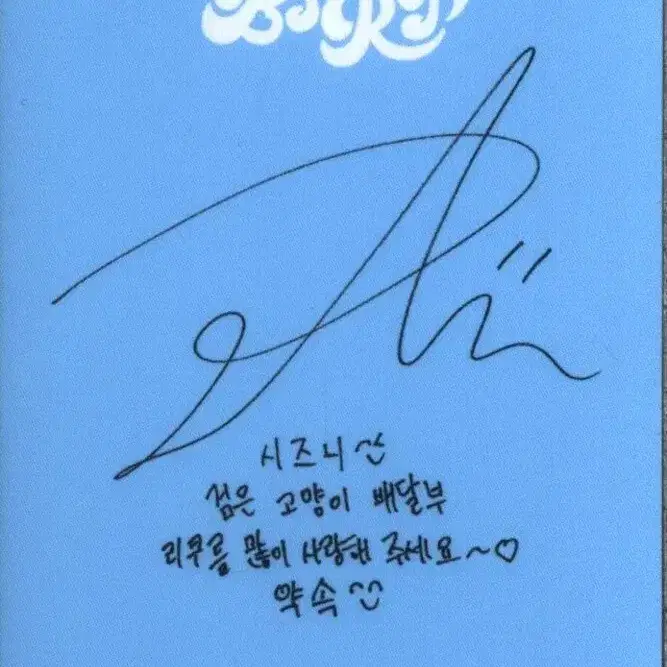 시즈니
검은 고양이 배달부
리쿠를 많이 사랑해 주세요~♡
약속